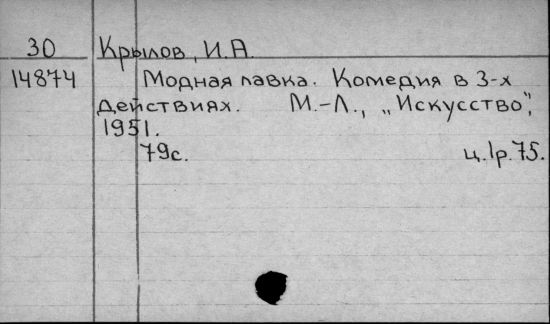 30 Крылов, И.А.
14874 Модная лавка. Комедия в 3-х
действиях. М.-Л., „Искусство",
1951.
79с. ц.1р.75.